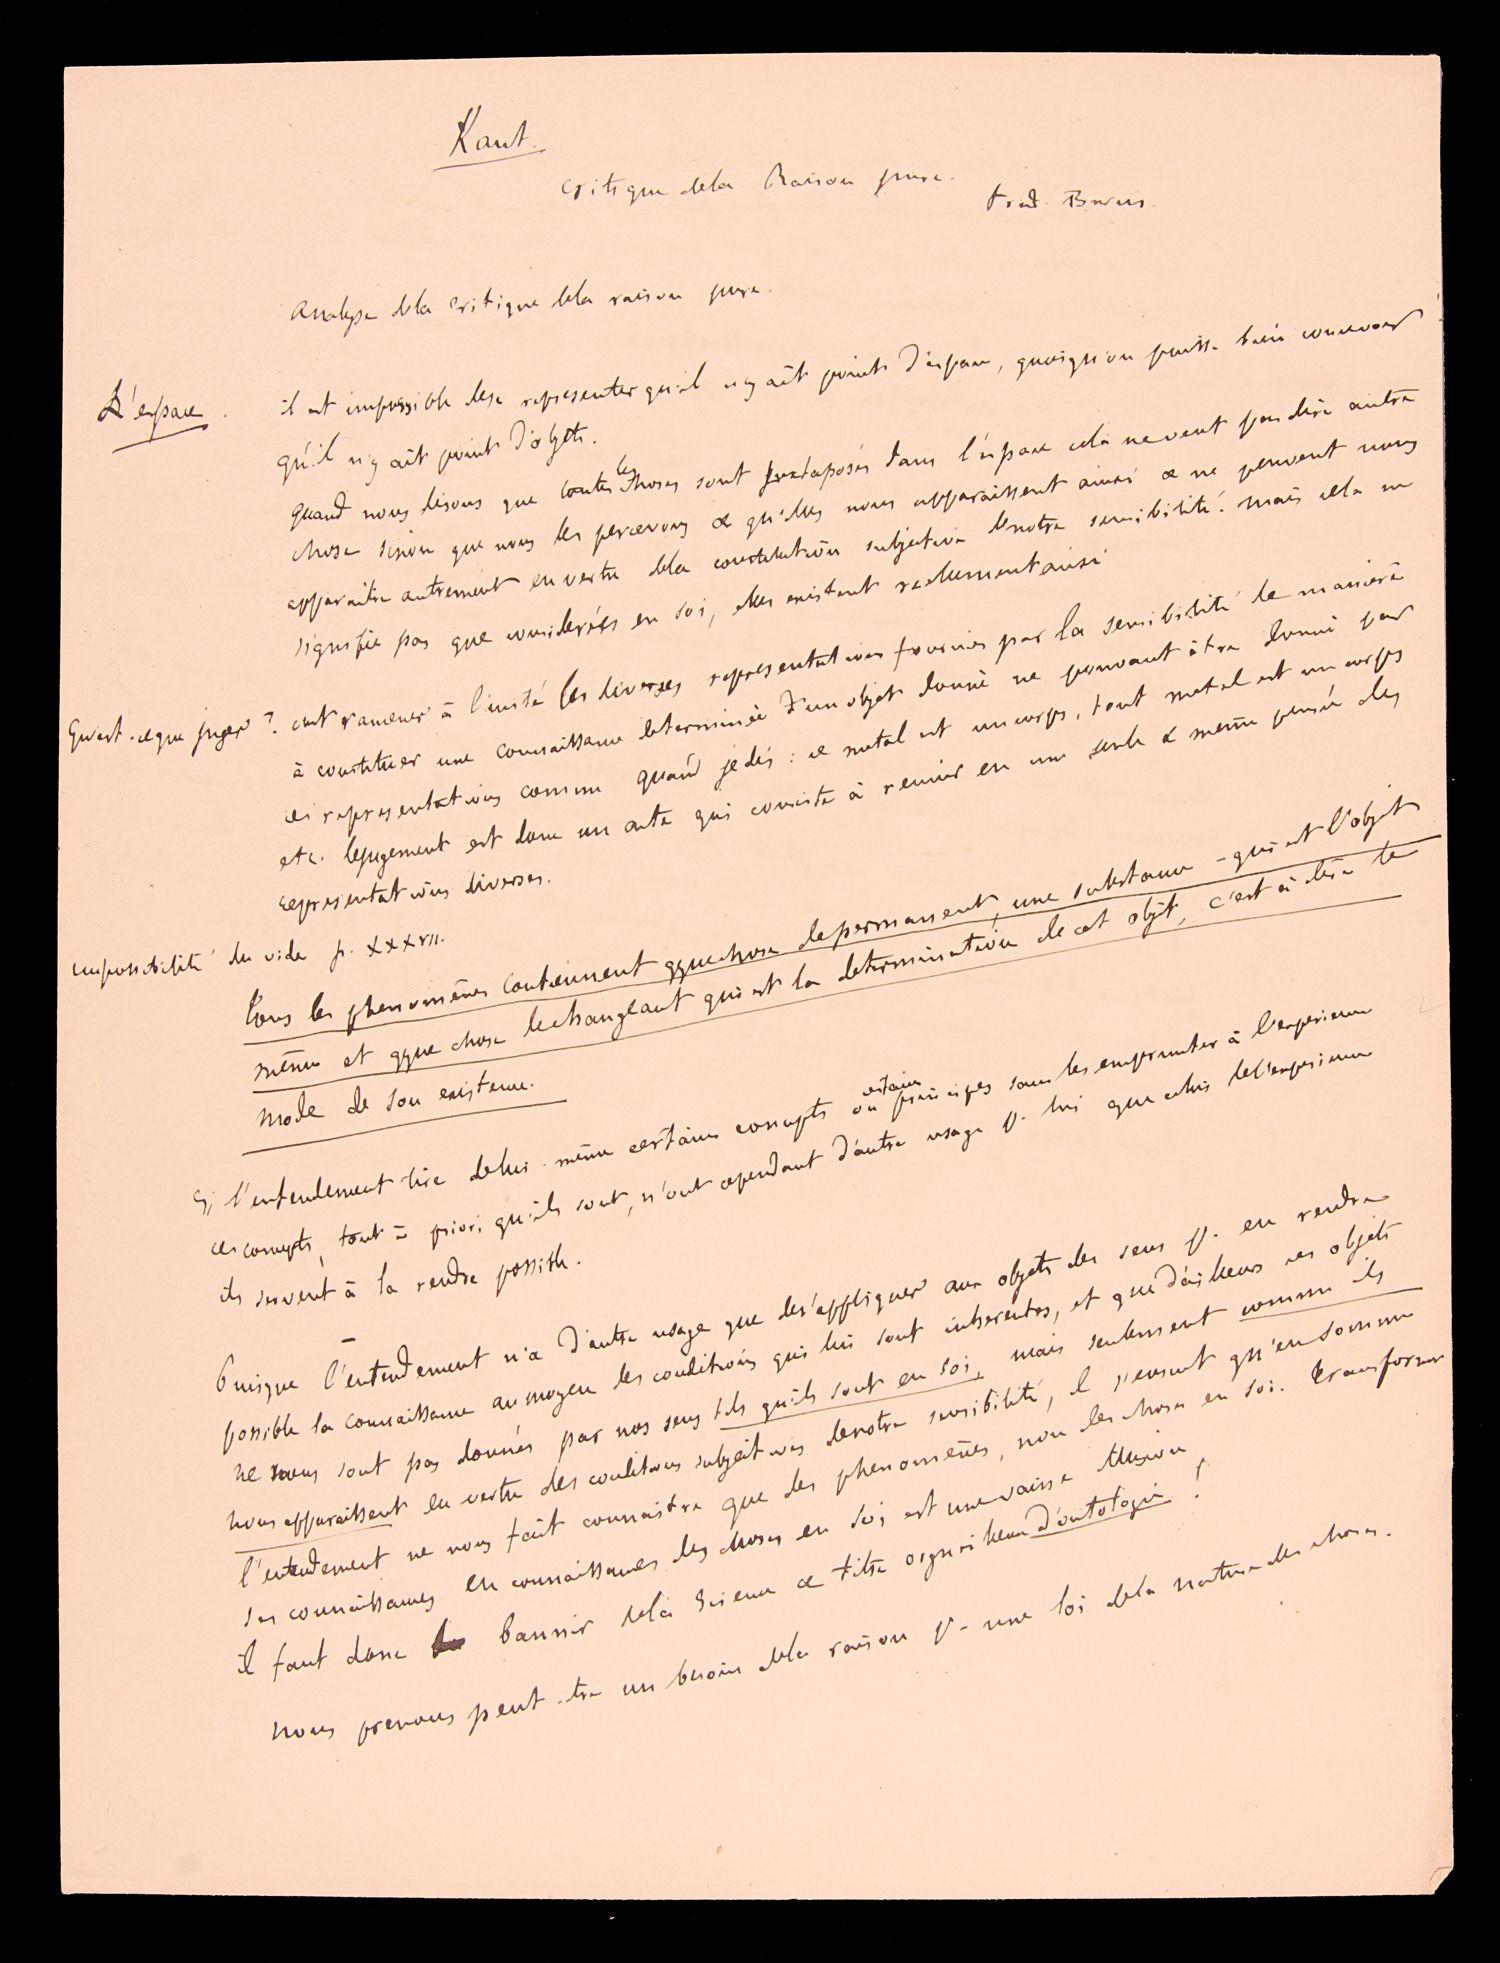 Kant.
Critique de la Raison pure.
trad. Barni.
Analyse de la Critique de la raison pure.
L'espace.
il est impossible de se representer qu'il n'y ait point d'espace, quoiqu'on puisse bien concevoir
qu'il n'y ait point d'objets.
quand nous disons que toutes les choses sont juxtaposées dans l'espace cela ne veut pas dire autre
chose sinon que nous les percevons et qu'elles nous apparaissent ainsi et ne peuvent nous
apparaitre autrement en vertu de la constitution subjective de notre sensibilité. mais cela ne
signifie pas que considerées en soi, elles existent reellement ainsi
Qu'est-ce que juger? c'est ramener à l'unité les diverses representations fournies par la sensibilité de maniere
à constituer une connaissance determinée d'un objet donné ne pouvant être donné par
ces representations comme quand je dis : ce metal est un corps, tout metal est un corps
etc. le jugement est donc un acte qui consiste à reunir en une seule & même pensée des
representations diverses.
impossibilité du vide p. XXXVII.
Tous les phenomènes contiennent qque chose de permanent, une substance - qui est l'objet
même et qque chose de changeant qui est la determination de cet objet, c'est à dire le
mode de son existence.
Si l'entendement tire de lui-même certains concepts ou certains principes sans les emprunter à l'experience
ces concepts, tout à priori qu'ils sont, n'ont cependant d'autre usage p. lui que celui de l'experience
ils servent à la rendre possible.
Puisque l'entendement n'a d'autre usage que de s'appliquer aux objets des sens p. en rendre
possible la connaissance au moyen des conditions qui lui sont inherentes, et que d'ailleurs ces objets
ne nous sont pas donnés par nos sens tels qu'ils sont en soi, mais seulement comme ils
nous apparaissent en vertu des conditions subjectives de notre sensibilité, il s'ensuit qu'en somme
l'entendement ne nous fait connaitre que des phenomènes, non des choses en soi. transformer
ses connaissances en connaissances des choses en soi est une vaine illusion
il faut donc bannir de la science ce titre orgueilleux d'ontologie!
nous prenons peut-etre un besoin de la raison p. une loi de la nature des choses.